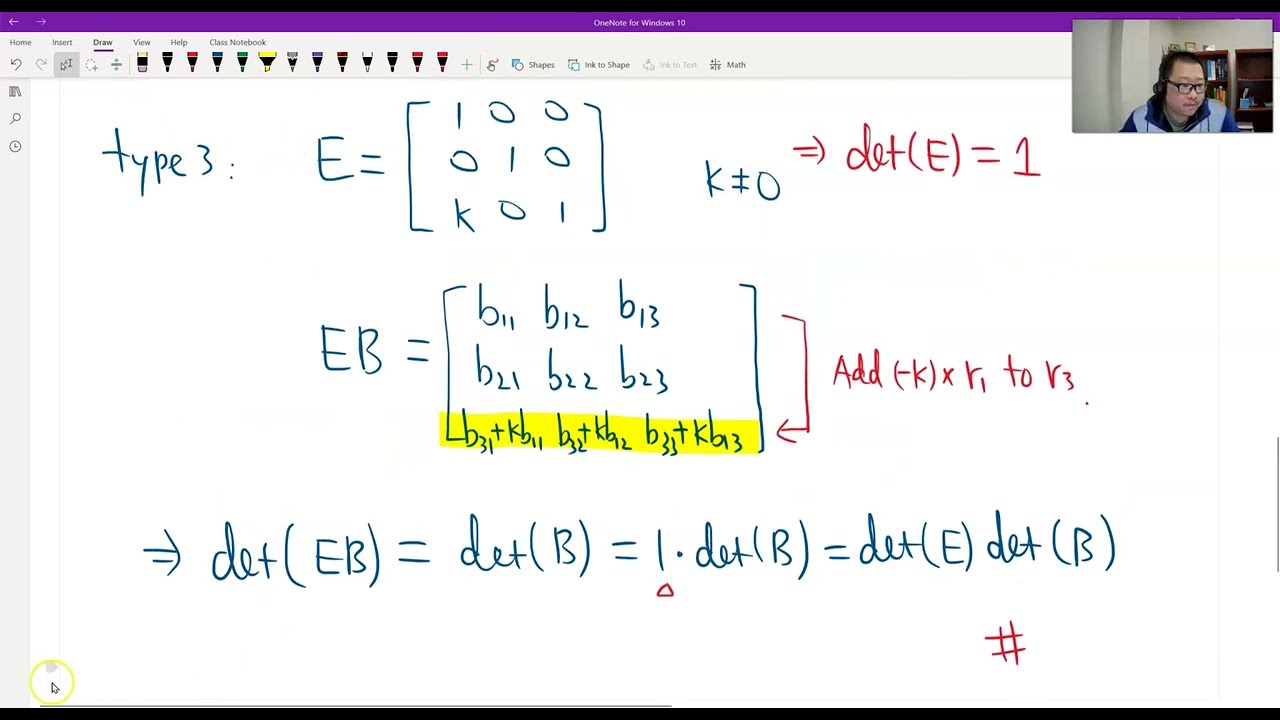 OneNote for Windows 10
Home Insert Draw View Help Class Notebook
Shapes Ink to Shape Ink to Text Math
type 3: E = [ 1 0 0 k ≠ 0 ⇒ det(E) = 1
0 1 0
k 0 1 ]
EB = [ b11 b12 b13
b21 b22 b23 Add (-k) × r1 to r3.
b31+kb11 b32+kb12 b33+kb13 ]
⇒ det(EB) = det(B) = 1 · det(B) = det(E) det(B)
#